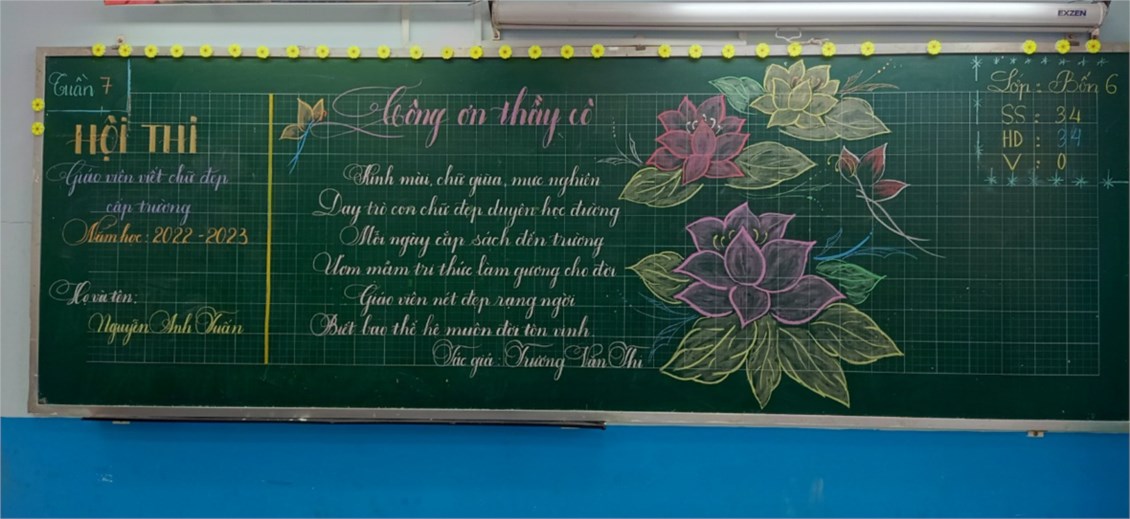 EXZEN
Tuần 7
HỘI THI
Giáo viên viết chữ đẹp
cấp trường
Năm học: 2022 - 2023
Họ và tên:
Nguyễn Anh Tuấn
Công ơn thầy cô
Kính mài, chữ giũa, mực nghiên
Dạy trò con chữ đẹp duyên học đường
Mỗi ngày cắp sách đến trường
Ươm mầm tri thức làm gương cho đời
Giáo viên nét đẹp rạng ngời
Biết bao thế hệ muôn đời tôn vinh.
Tác giả: Trương Văn Thi
Lớp: Bốn 6
SS: 34
HD: 34
V: 0